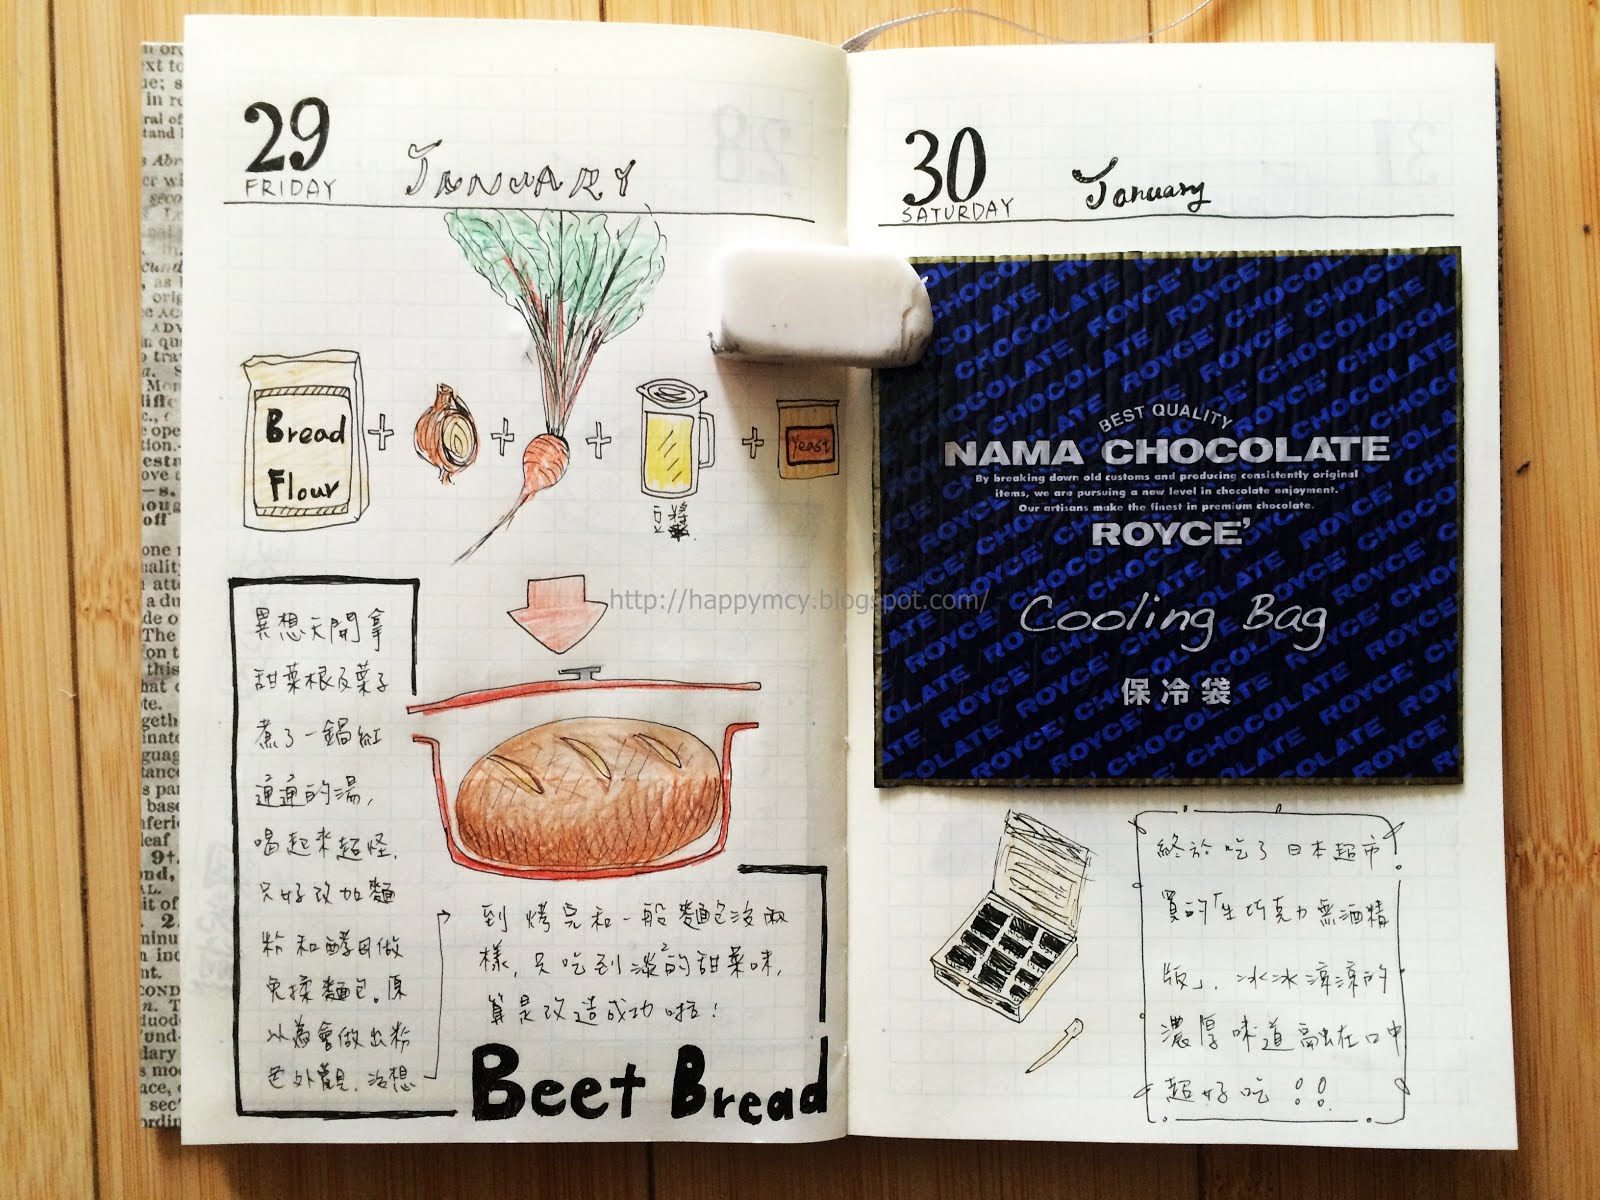 29
FRIDAY
JANUARY
Bread
Flour
Yeast
豆漿
異想天開拿
甜菜根及葉子
煮了一鍋紅
通通的湯,
喝起來超怪,
只好改加麵
粉和酵母做
免揉麵包。原
以為會做出粉
色外觀,沒想
到烤完和一般麵包沒兩
樣,只吃到淡淡的甜菜味,
算是改造成功啦!
Beet Bread
http://happymcy.blogspot.com/
30
SATURDAY
January
BEST QUALITY
NAMA CHOCOLATE
By breaking down old customs and producing consistently original
items, we are pursuing a new level in chocolate enjoyment.
Our artisans make the finest in premium chocolate.
ROYCE'
Cooling Bag
保冷袋
終於吃了日本超市
買的「生巧克力無酒精
版」, 冰冰涼涼的
濃厚味道融在口中
超好吃!!